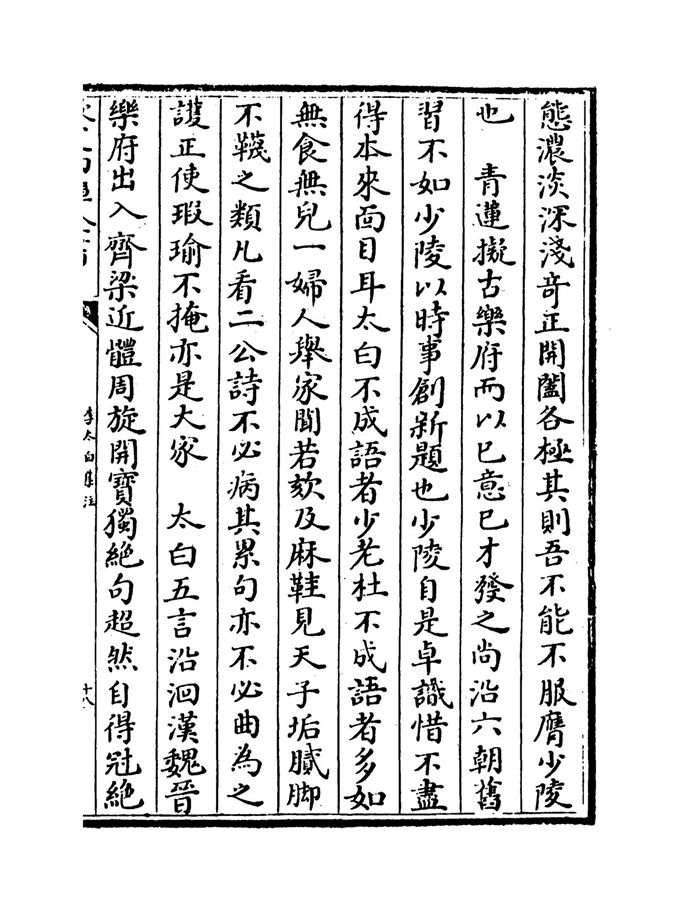 態濃淡深淺竒正開闔各極其則吾不能不服膺少陵
也　青蓮擬古樂府而以已意已才發之尚沿六朝舊
習不如少陵以時事創新題也少陵自是卓識惜不盡
得本來面目耳太白不成語者少老杜不成語者多如
無食無兒一婦人舉家聞若欬及麻鞋見天子垢膩脚
不韈之類凡看二公詩不必病其累句亦不必曲為之
護正使瑕瑜不掩亦是大家　太白五言沿洄漢魏晉
樂府出入齊梁近體周旋開寶獨絶句超然自得冠絶
李太白集注
十八